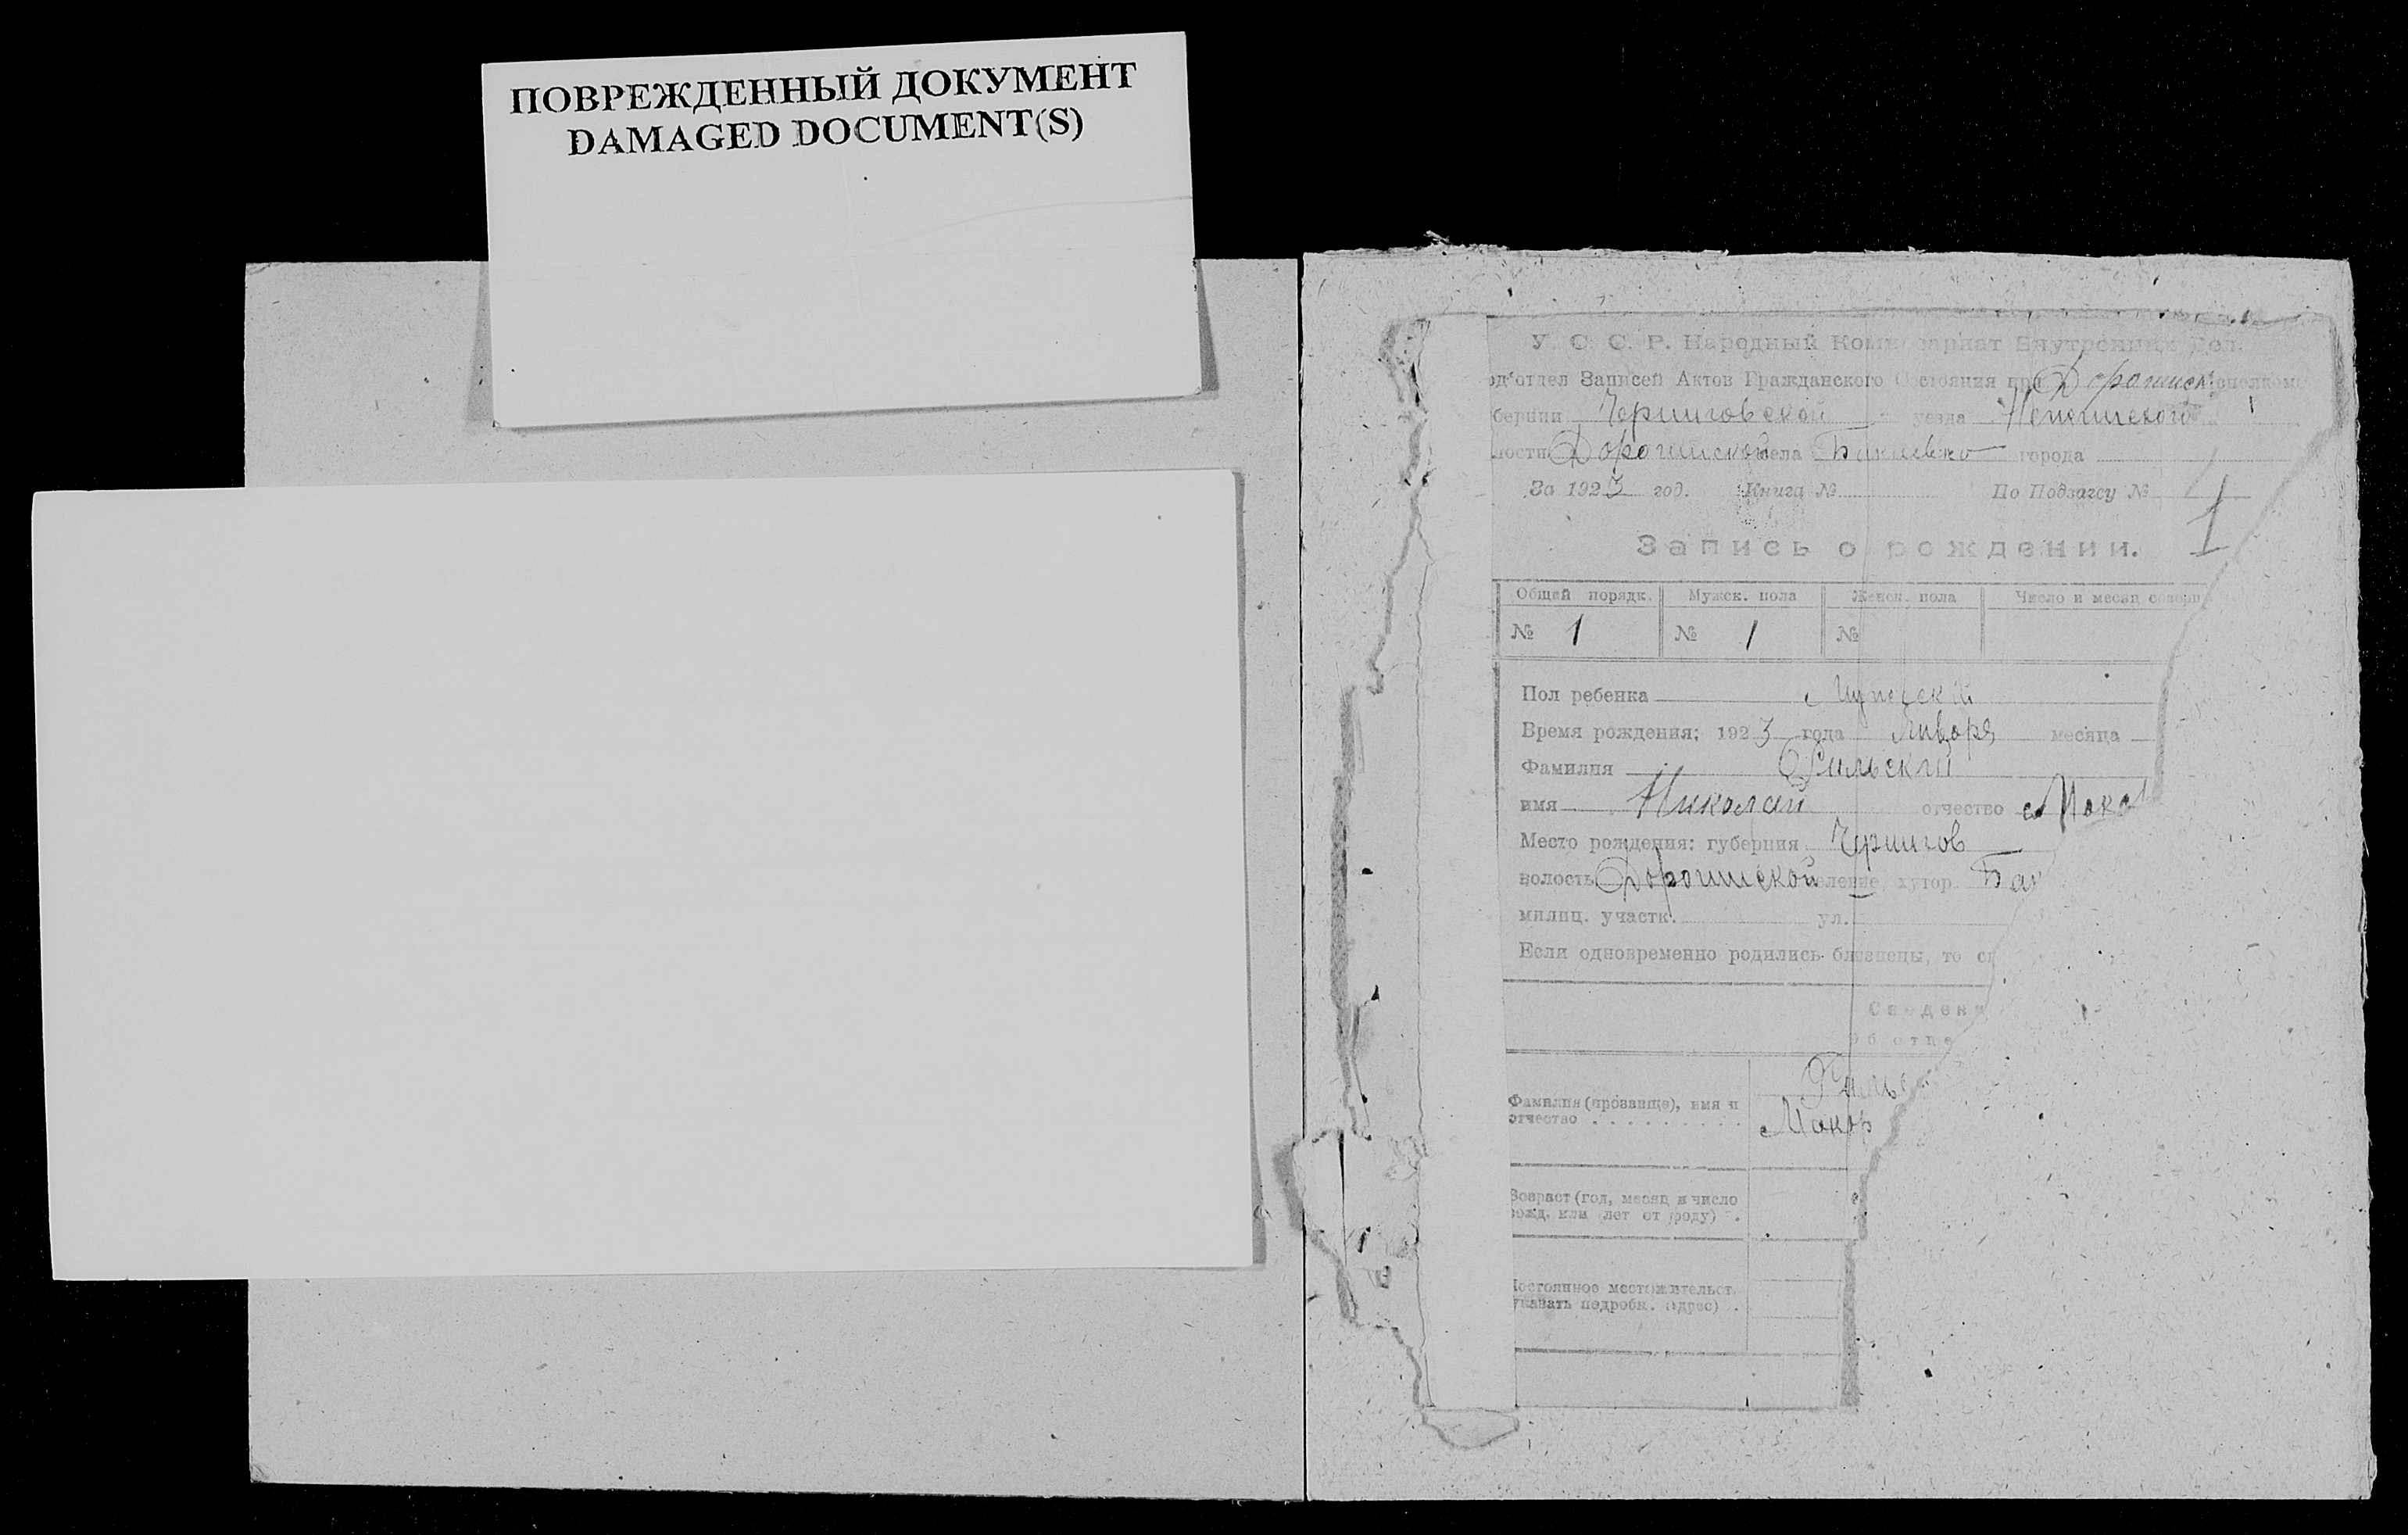 ПОВРЕЖДЕННЫЙ ДОКУМЕНТ
DAMAGED DOCUMENT(S)
У. С. С. Р. Народный Комиссариат Внутренних Дел.
од'отдел Записей Актов Гражданского Состояния при
бернии Черниговской уезда
лости Дорогинской села города
За 1923 год. Книга № По Подзагсу № 1
Запись о рождении.
Общей порядк. Мужск. пола Женск. пола Число и месяц соверш
№ 1 № 1 №
Пол ребенка Мужеский
Время рождения: 1923 года Января месяца
Фамилия
имя Николай отчество Мака
Место рождения: губерния Чернигов
волость Дорогинской селение, хутор Бак
милиц. участк. ул.
Если одновременно родились близнецы, то сл
Сведени
Об отце
Фамилия (прозвище), имя и
отчество . . . . . . . . . Макар
Возраст (год, месяц и число
рожд. или лет от роду) .
Постоянное местожительст.
указать подробн. адрес) .